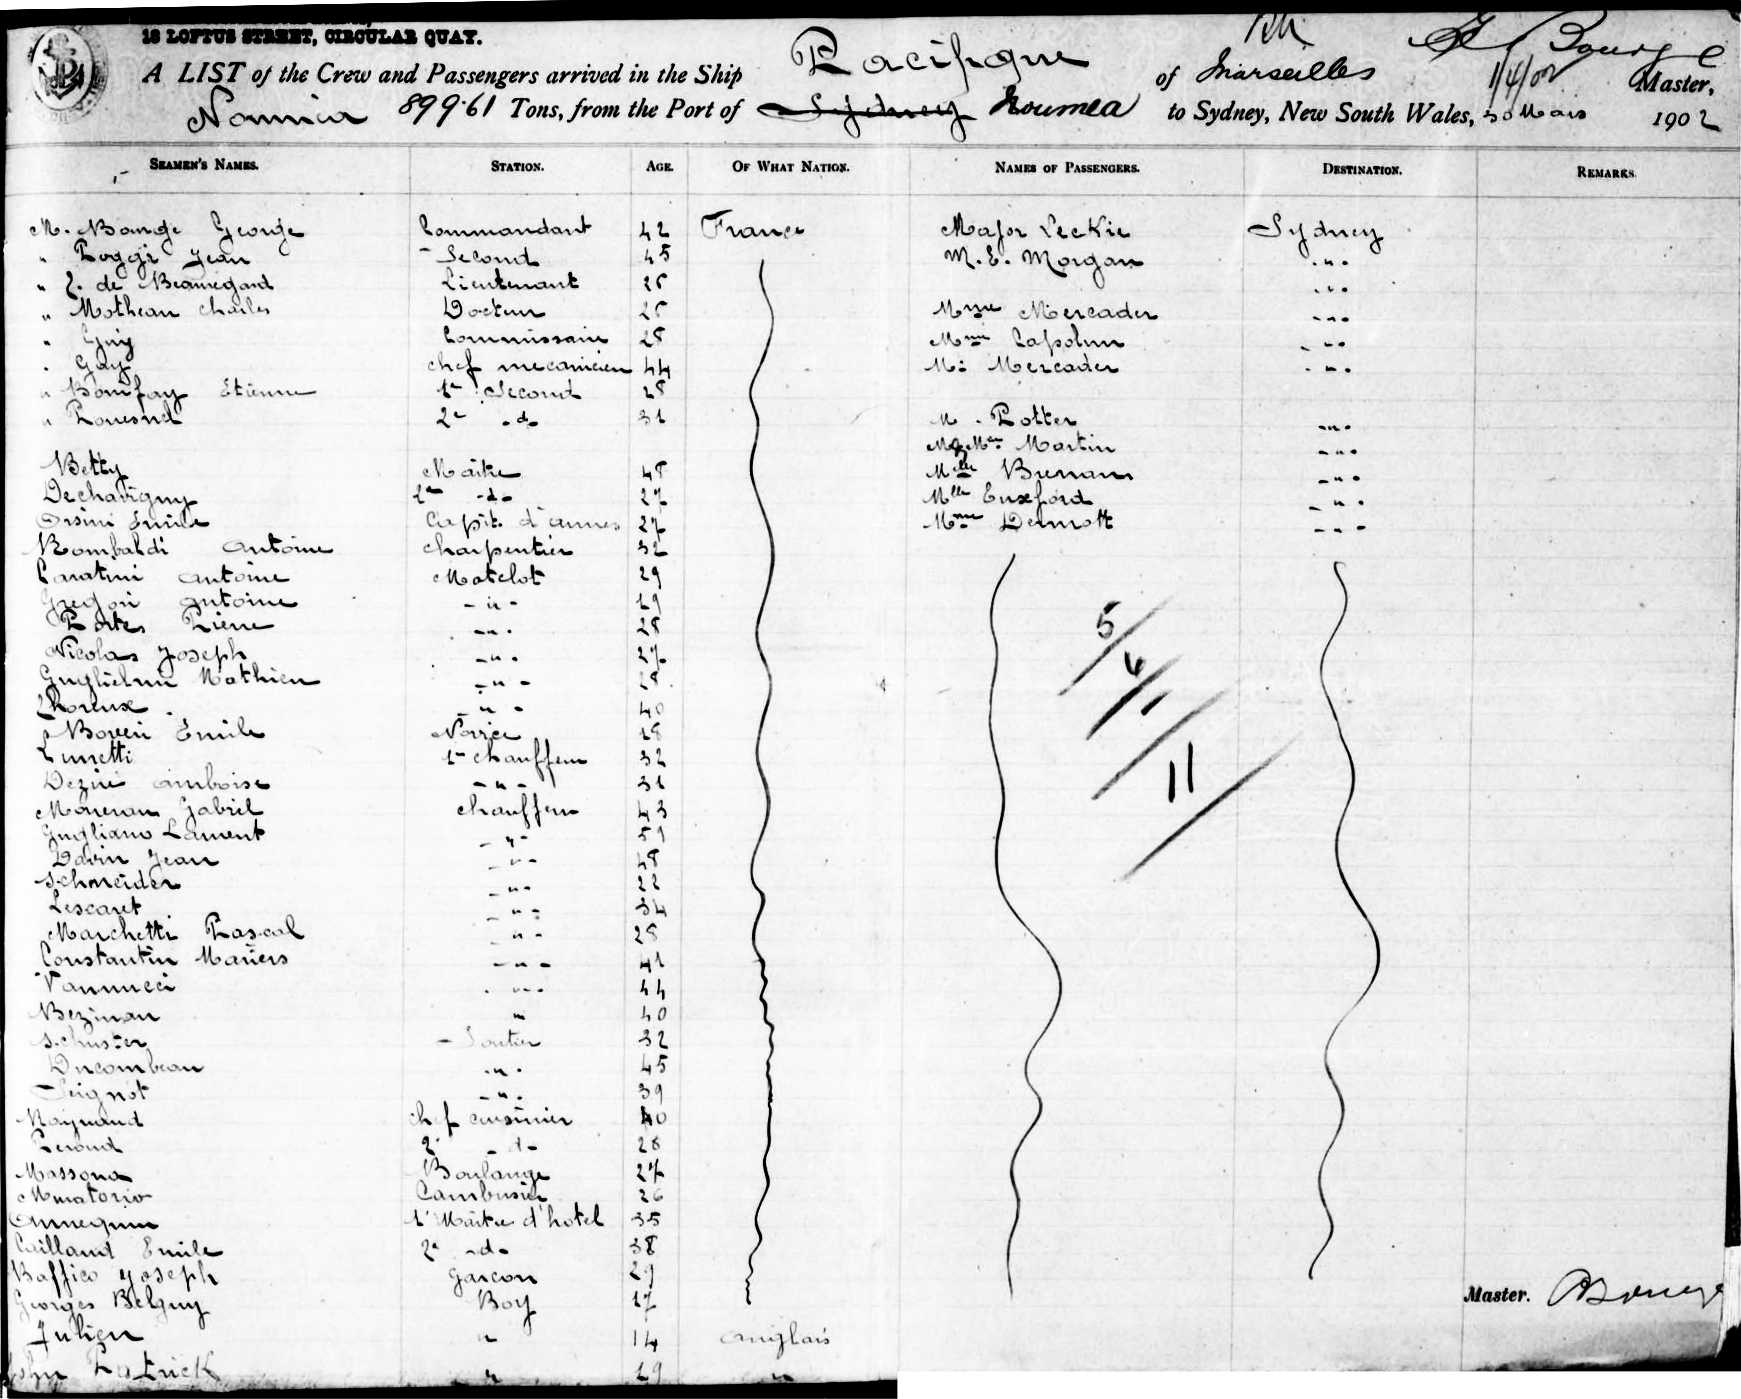 18 LOFTUS STREET, CIRCULAR QUAY.
A LIST of the Crew and Passengers arrived in the Ship Pacifique of Marseilles Master,
899.61 Tons, from the Port of Sydney Noumea to Sydney, New South Wales, 30 Mars 1902
1/4/02
SEAMEN'S NAMES. STATION. AGE. OF WHAT NATION. NAMES OF PASSENGERS. DESTINATION. REMARKS.
M. Bourge George Commandant 42 France Major Leckie Sydney
" Poggi Jean Second 45 M. E. Morgan -"-
" L. de Beauregard Lieutenant 26 -"-
" Motheau Charles Docteur 26 Mme Mercader -"-
" Guy Commissaire 28 Mme -"-
" Gay chef mecanicien 44 M. Mercader -"-
" Bonifay Etienne 1er Second 28
" 2e -d- 31 M. Potter -"-
M & Mme Martin -"-
Betty Maitre 48 Mlle Brennan -"-
Dechavigny 2e -d- 27 Mlle Enxford -"-
Orsini Emile Capit. d'armes 27 Mme Dermott -"-
Rombaldi Antoine charpentier 32
Caratini Antoine Matelot 29
Gregori Antoine -"- 29
Portes Pierre -"- 28
Nicolas Joseph -"- 27
Guglielmi Mathieu -"-
-"- 40
Boveri Emile Novice 18
Lunetti 1er chauffeur 32
Deziré Amboise -"- 31
Gabriel chauffeur 43
Gugliano Laurent -"- 51
Davin Jean -"- 48
Schneider -"- 22
Lescaret -"- 34
Marchetti Pascal -"- 28
Constantin Mariers -"- 41
Vannucci -"- 44
Beziman " 40
Schuster Soutier 32
Ducombeau -"- 45
Seignot -"- 39
Raynaud chef cuisinier 40
Peroud 2e -d- 28
Massona Boulanger 27
Muratorio Cambusier 26
Annequin 1r Maitre d'hotel 35
Cailland Emile 2e -d- 38
Baffico Joseph Garcon 29
Georges Belguy Boy 17
Julien " 14 Anglais
John Patrick " 19 "
5/
6/1
/11/
Master.